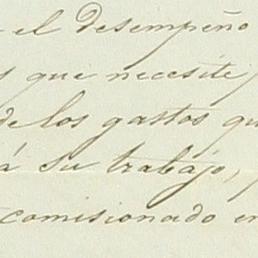 el desempeño
que necesite
de los gastos qu
á su trabajo,
comisionado en